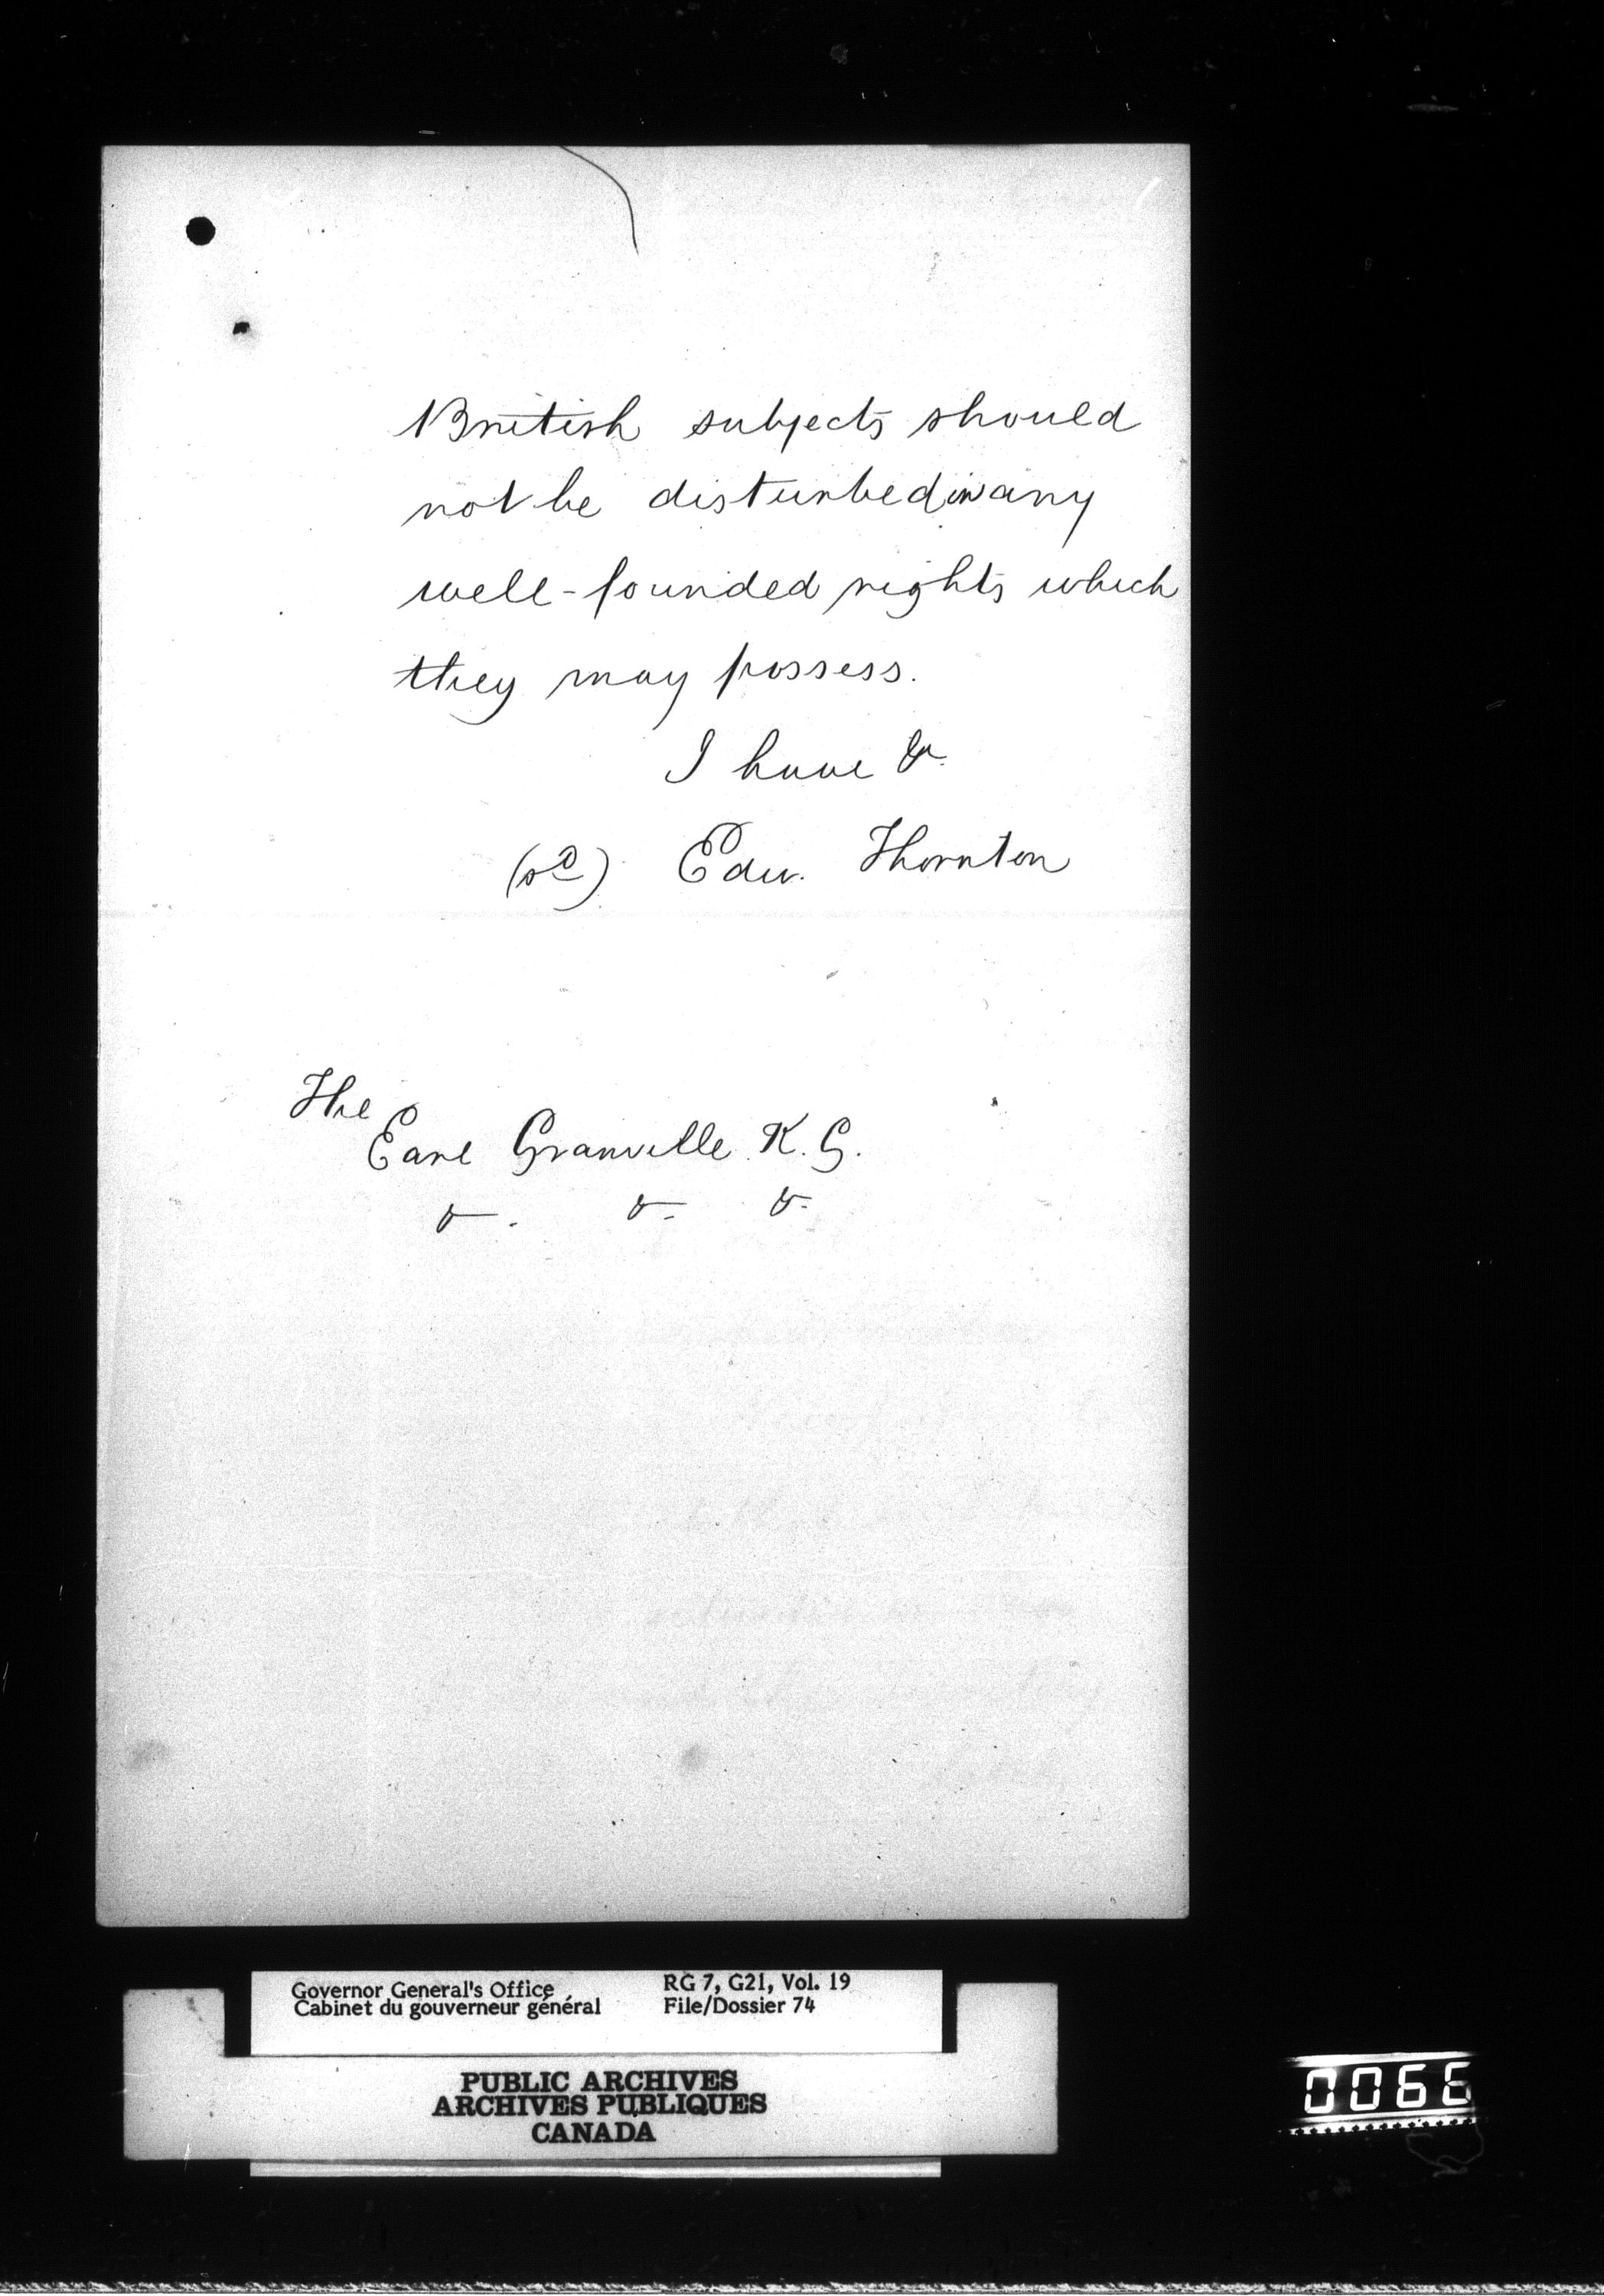 British subjects should
not be disturbed in any
well-founded rights which
they may possess.
I have &c.
(sd) Edw. Thornton
The
Earl Granville K.G.
&c. &c. &c.
Governor General's Office
Cabinet du gouverneur général
RG 7, G21, Vol. 19
File/Dossier 74
PUBLIC ARCHIVES
ARCHIVES PUBLIQUES
CANADA
0066